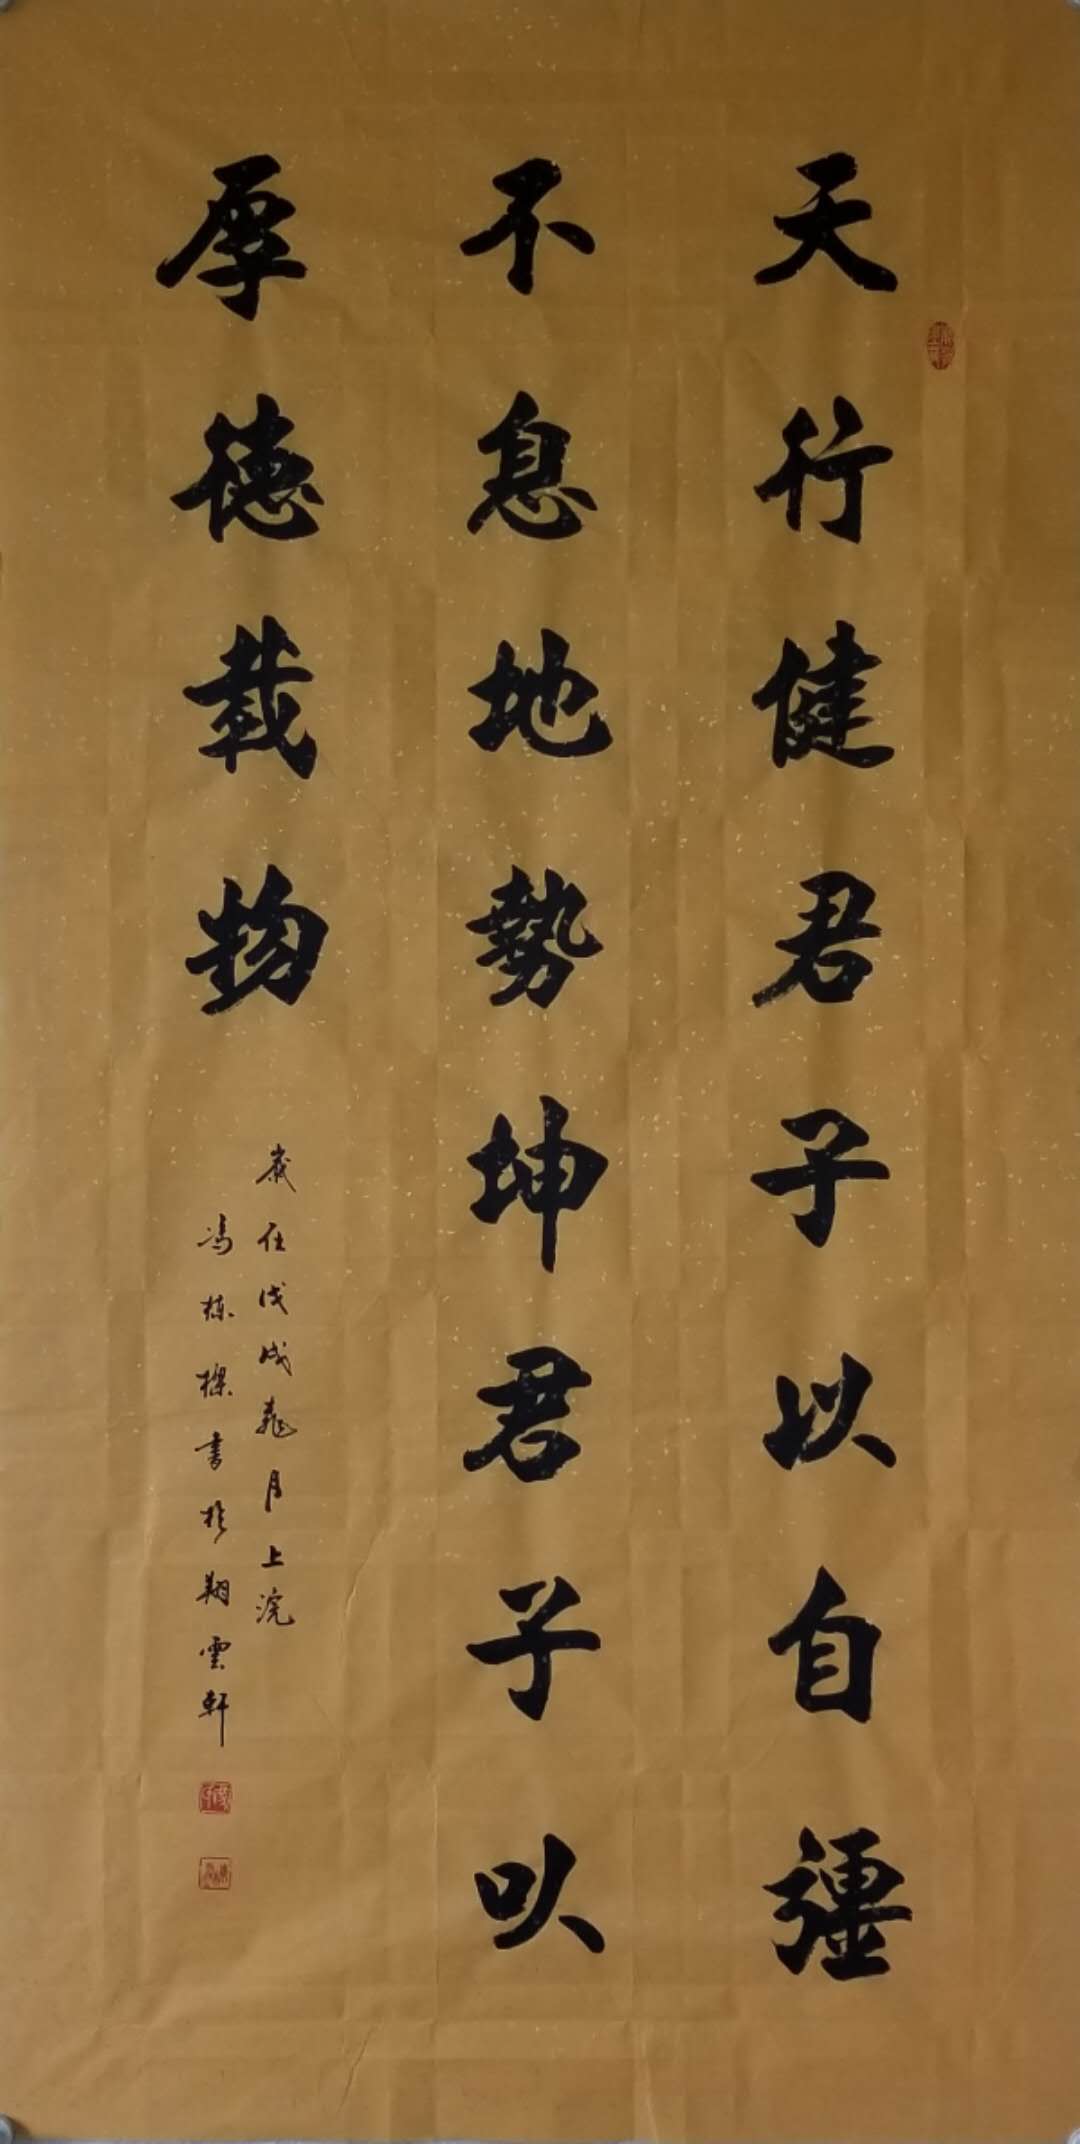 天行健君子以自彊
不息地勢坤君子以
厚德載物
歲在戊戌桃月上浣
冯栋樑书於翔雲軒